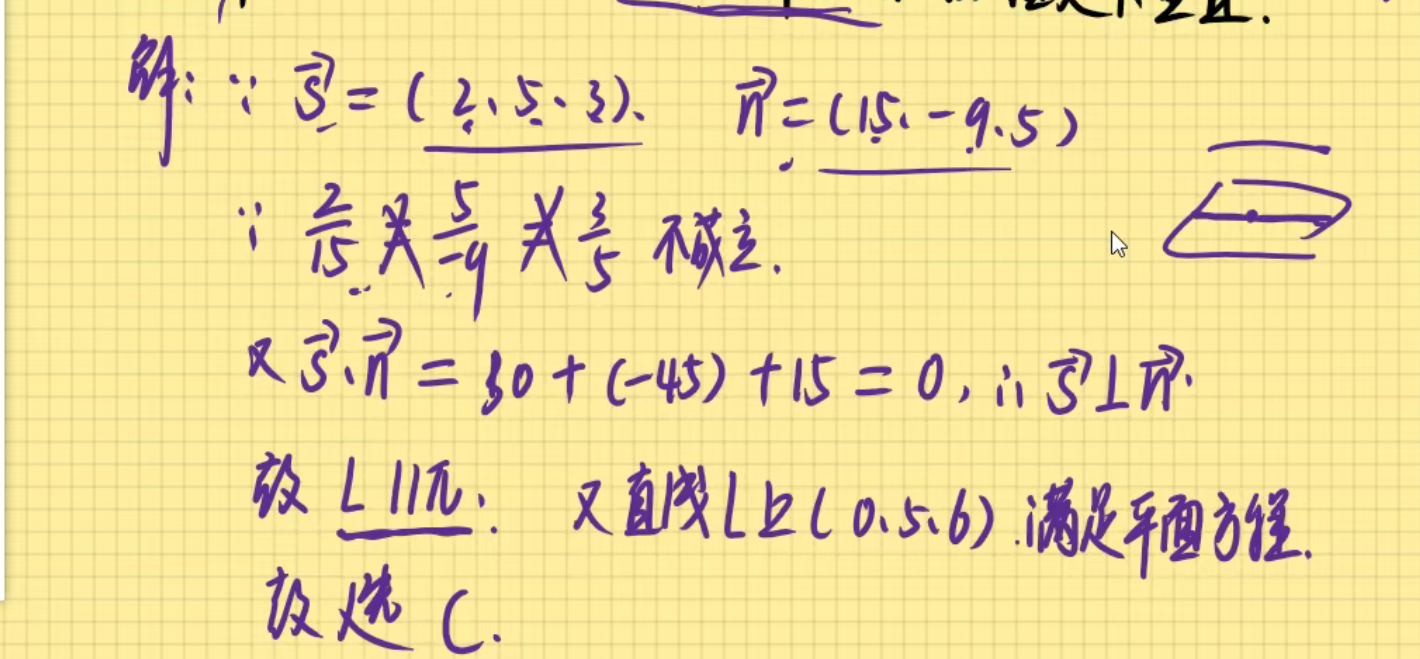 解: ∵ s⃗ = (2、5、3)、 n⃗ = (15、-9.5)
∵ 2/15 ≠ 5/-9 ≠ 3/5 不成立.
又 s⃗·n⃗ = 30 + (-45) + 15 = 0, ∴ s⃗⊥n⃗.
故 L // π. 又直线L上(0.5、6).满足平面方程.
故选 C.